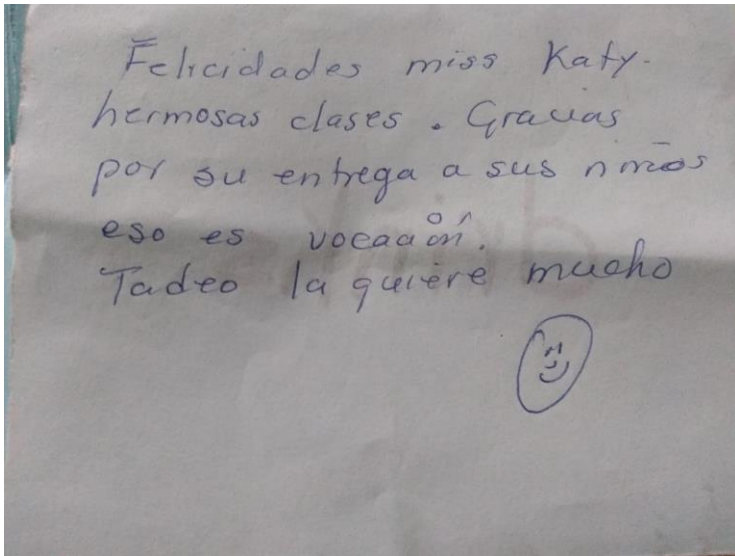 Felicidades miss Katy.
hermosas clases. Gracias
por su entrega a sus niños
eso es vocación.
Tadeo la quiere mucho